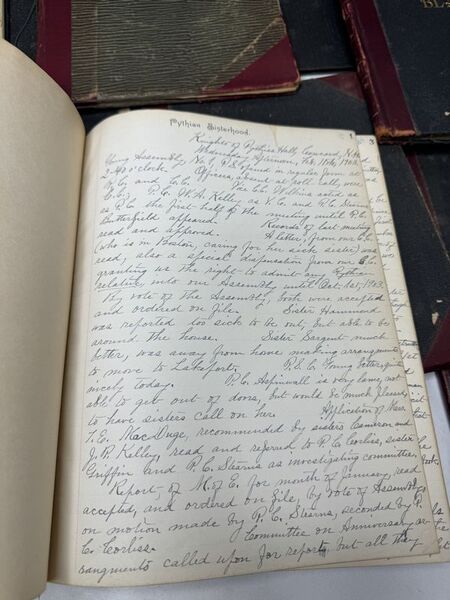 BL
Pythian Sisterhood.
1
3
Knights of Pythias Hall, Concord, N.H.
Wednesday Afternoon, Feb. 11th, 1903,
Young Assembly, No. 1, P.S. opened in regular form at
2.40 o'clock. Officers, absent at roll call, were
C.C. and C.C. V.C. Collins acted as
C.C., P.C. W.A. Kelley as V.C. and P.C.
as P.C. the first half of the meeting until P.C.
Butterfield appeared. Records of last meeting
read and approved. A letter, from our C.C.
(who is in Boston, caring for her sick sister) was
read, also a special dispensation from our S.C.
granting us the right to admit any Pythian
relative into our Assembly until Oct. 1st, 1903.
By vote of the Assembly, both were accepted
and ordered on file. Sister Hammond
was reported too sick to be out, but able to be
around the house. Sister Sargent much
better, was away from home making arrangements
to move to Lakeport. P.S.C. Young better, quite
nicely today. P.C. Aspinwall is very lame, not
able to get out of doors, but would be much pleased
to have sisters call on her. Application of Mrs.
T.E. MacDuge, recommended by sisters Cameron and
J.R. Kelley, read and referred to P.C. Corliss, sister
Griffin and P.C. Stearns as investigating committee.
Report, of M. of E. for month of January, read
accepted, and ordered on file, by vote of Assembly
on motion made by P.C. Stearns, seconded by P.
C. Corliss. Committee on Anniversary ar-
rangements called upon for report, but all they